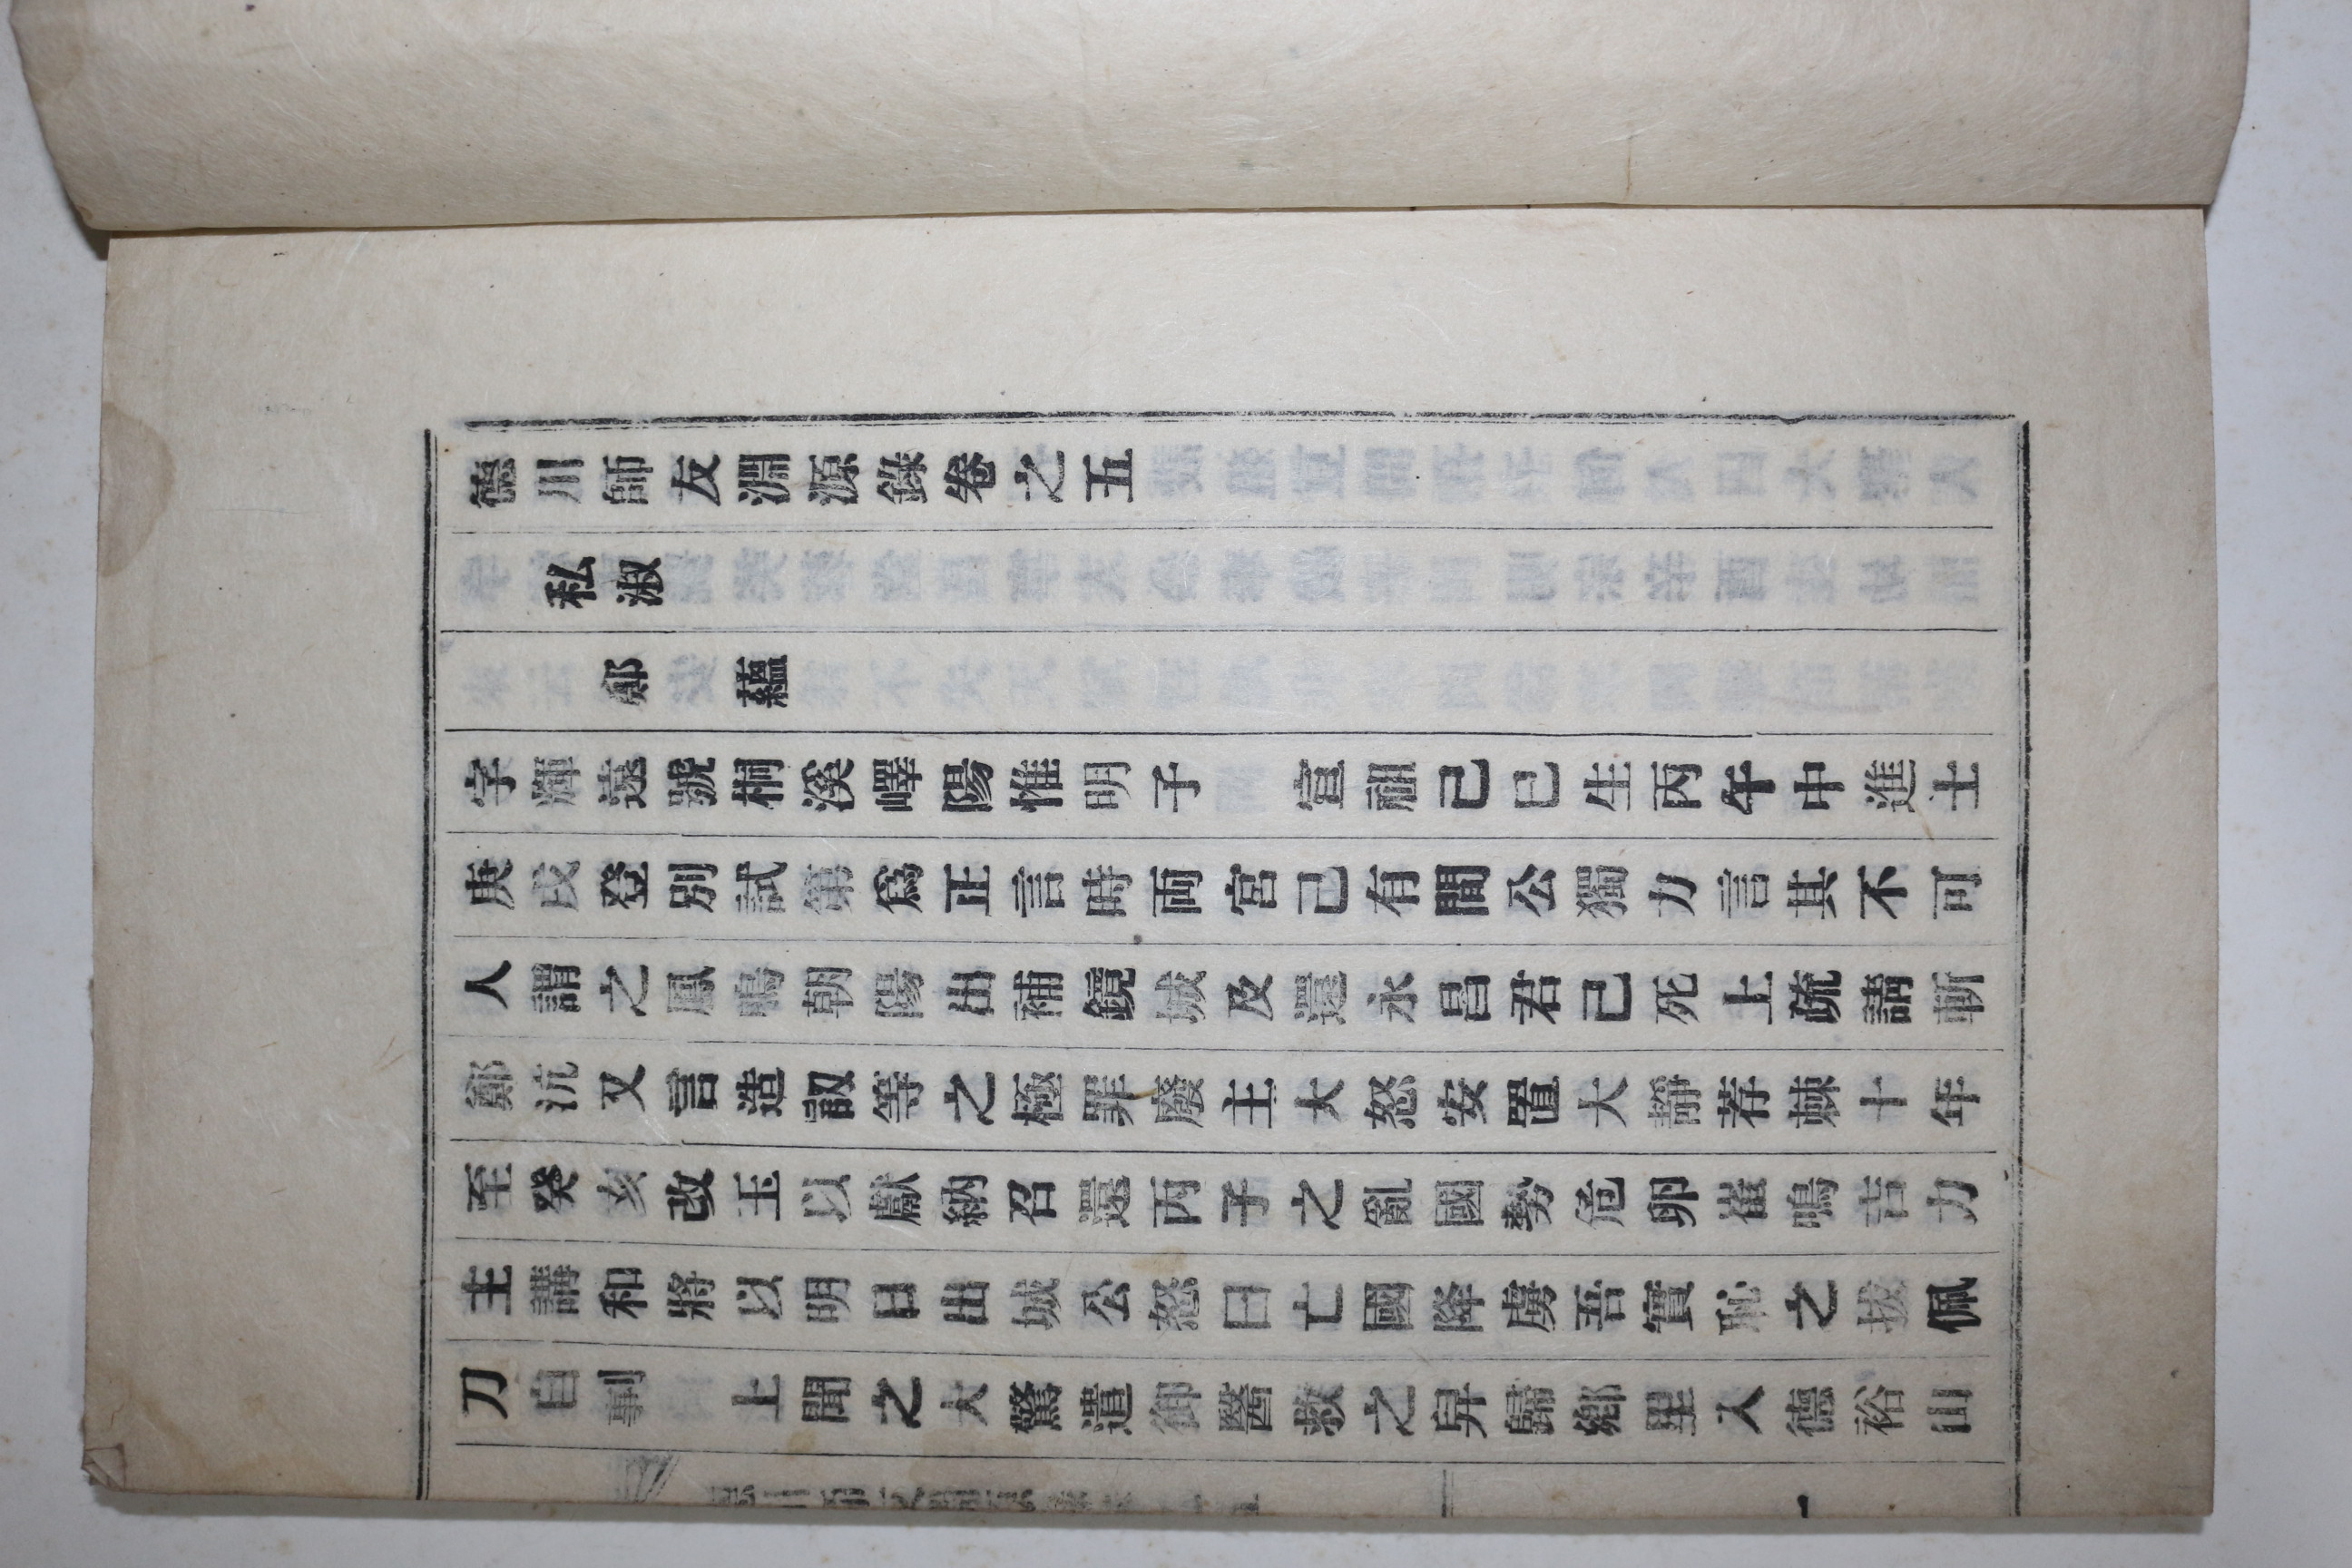 德川師友淵源錄卷之五
私淑
鄭蘊
字輝遠號桐溪嶧陽惟明子 宣祖己巳生丙午中進士
庚戌登別試第爲正言時両宮己有間公獨力言其不可
人謂之鳳鳴朝陽出補鏡城及還永昌君己死上疏請斬
鄭沆又言造訒等之極罪廢主大怒安置大靜荐棘十年
至癸亥改玉以獻納召還丙子之亂國勢危卵崔鳴吉力
主講和將以明日出城公怒曰亡國降虜吾實恥之拔佩
刀自剚 上聞之大驚遣御醫救之舁歸鄉里入德裕山